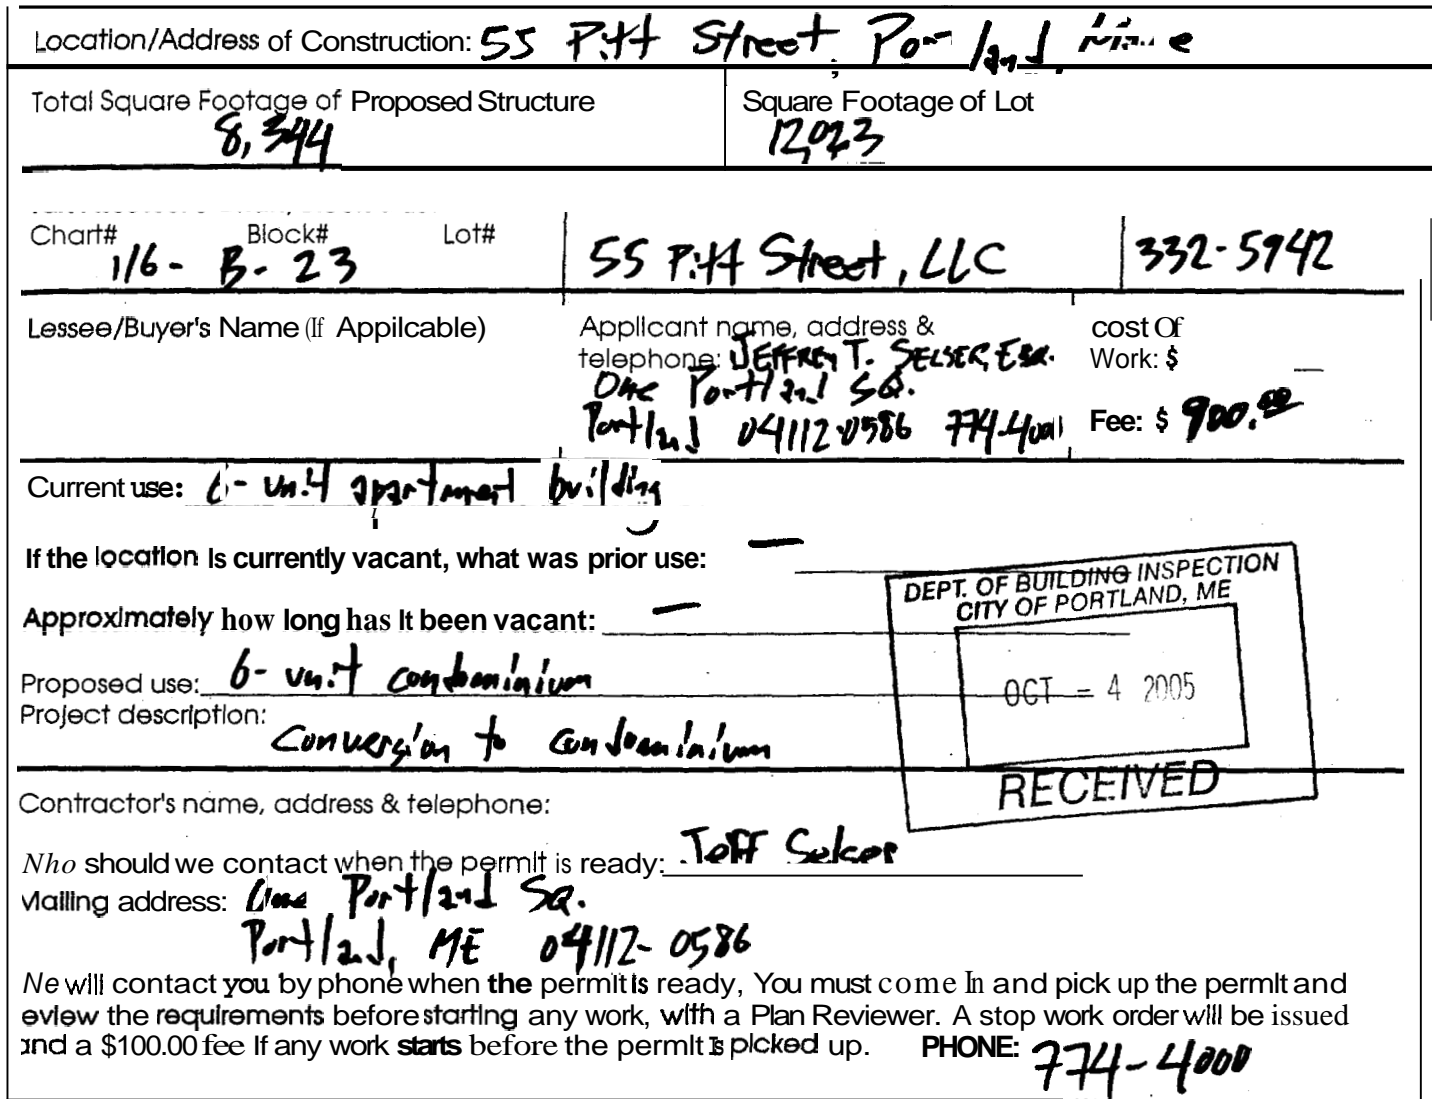 Location/Address of Construction: 55 Pitt Street, Portland, Maine
Total Square Footage of Proposed Structure
8,344
Square Footage of Lot
12,023
Chart# Block# Lot#
116- B- 23
55 Pitt Street, LLC
332-5942
Lessee/Buyer's Name (If Appilcable)
Applicant name, address &
telephone: JEFFREY T. SELSER, ESQ.
One Portland SQ.
Portland 04112-0586 774-4000
cost Of
Work: $
Fee: $ 900.00
Current use: 6-unit apartment building
If the location Is currently vacant, what was prior use: —
Approximately how long has It been vacant: —
Proposed use: 6-unit condominium
Project description:
Conversion to condominium
DEPT. OF BUILDING INSPECTION
CITY OF PORTLAND, ME
OCT - 4 2005
RECEIVED
Contractor's name, address & telephone:
Nho should we contact when the permit is ready: Jeff Selser
Mailing address: One Portland SQ.
Portland, ME 04112-0586
Ne will contact you by phone when the permit is ready, You must come In and pick up the permit and
eview the requirements before starting any work, with a Plan Reviewer. A stop work order will be issued
and a $100.00 fee If any work starts before the permit is picked up. PHONE: 774-4000